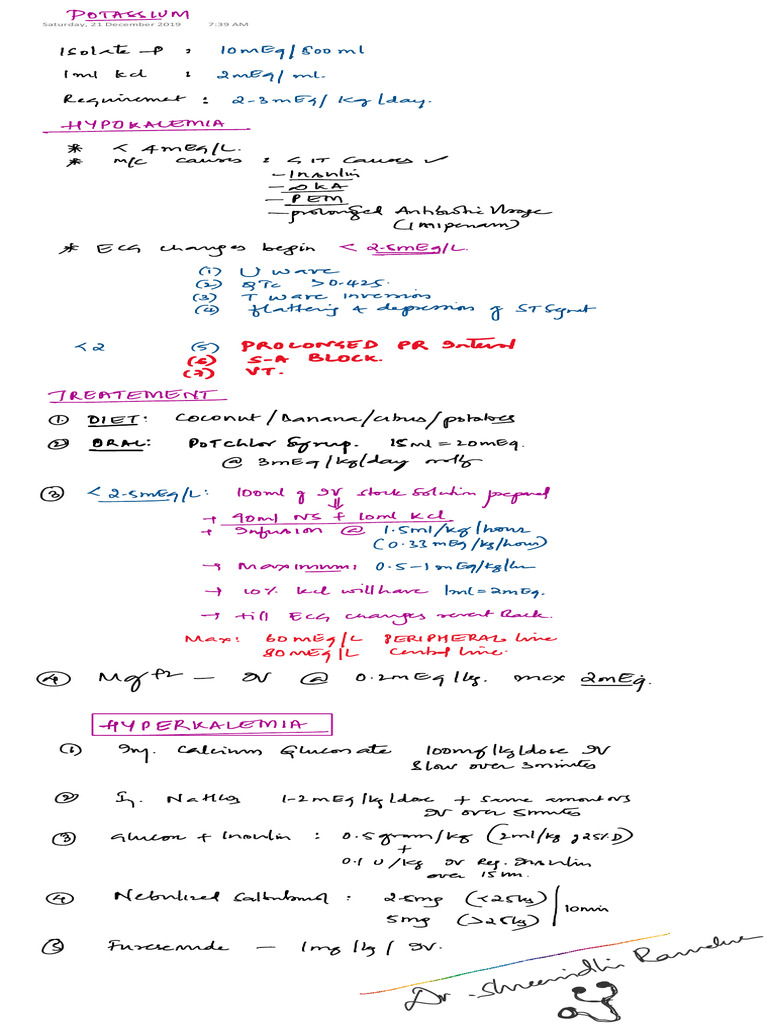 POTASSIUM
Saturday, 21 December 2019 7:39 AM
Isolate-P : 10mEq/500ml
1ml Kcl : 2mEq/ml.
Requiremet : 2-3mEq/Kg/day.
HYPOKALEMIA
* < 4mEq/L.
* M/C causes : GIT causes ✓
- Insulin
- DKA
- PEM
- prolonged Antibiotic Usage
(Imipenam)
* ECG changes begin < 2.5mEq/L.
(1) U wave
(2) QTc >0.425.
(3) T wave inversion
(4) flattering & depression of ST Segment
<2 (5) PROLONGED PR Interval
(6) S-A BLOCK.
(7) VT.
TREATEMENT
① DIET: Coconut/Banana/citrus/potatoes
② ORAL: Potchlor Syrup. 15ml=20mEq.
@ 3mEq/kg/day orally
③ <2.5mEq/L: 100ml of IV stock solution prepared
⇓
→ 90ml NS + 10ml Kcl
→ Infusion @ 1.5ml/kg/hour
(0.33mEq/kg/hour)
→ Maximum: 0.5-1mEq/kg/hr
→ 10% Kcl will have 1ml=2mEq.
→ till ECG changes revert back.
Max: 60mEq/L PERIPHERAL line
80mEq/L Central line.
④ Mg+2 - IV @ 0.2mEq/kg. max 2mEq.
HYPERKALEMIA
① Inj. Calcium Gluconate 100mg/kg/dose IV
Slow over 3minutes
② Inj. NaHCO3 1-2mEq/kg/dose + same amount NS
IV over 5minutes
③ Glucose + Insulin : 0.5gram/kg (2ml/kg of 25% D)
+
0.1 U/kg IV Reg. Insulin
over 15 min.
④ Nebulized Salbutamol : 2.5mg (<25kg)
5mg (>25kg) 10min
⑤ Furosemide - 1mg/kg/ IV.
Dr. Shreenidhi Ramdve